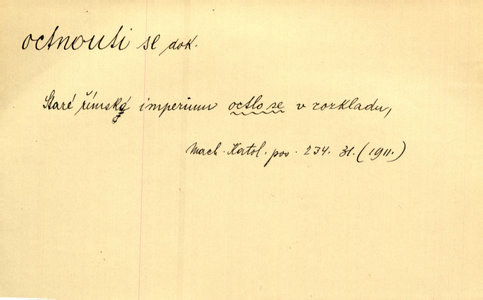 octnouti se dok.
Staré římské imperium octlo se v rozkladu,
Mach. Katol. pov. 234. 31. (1911.)